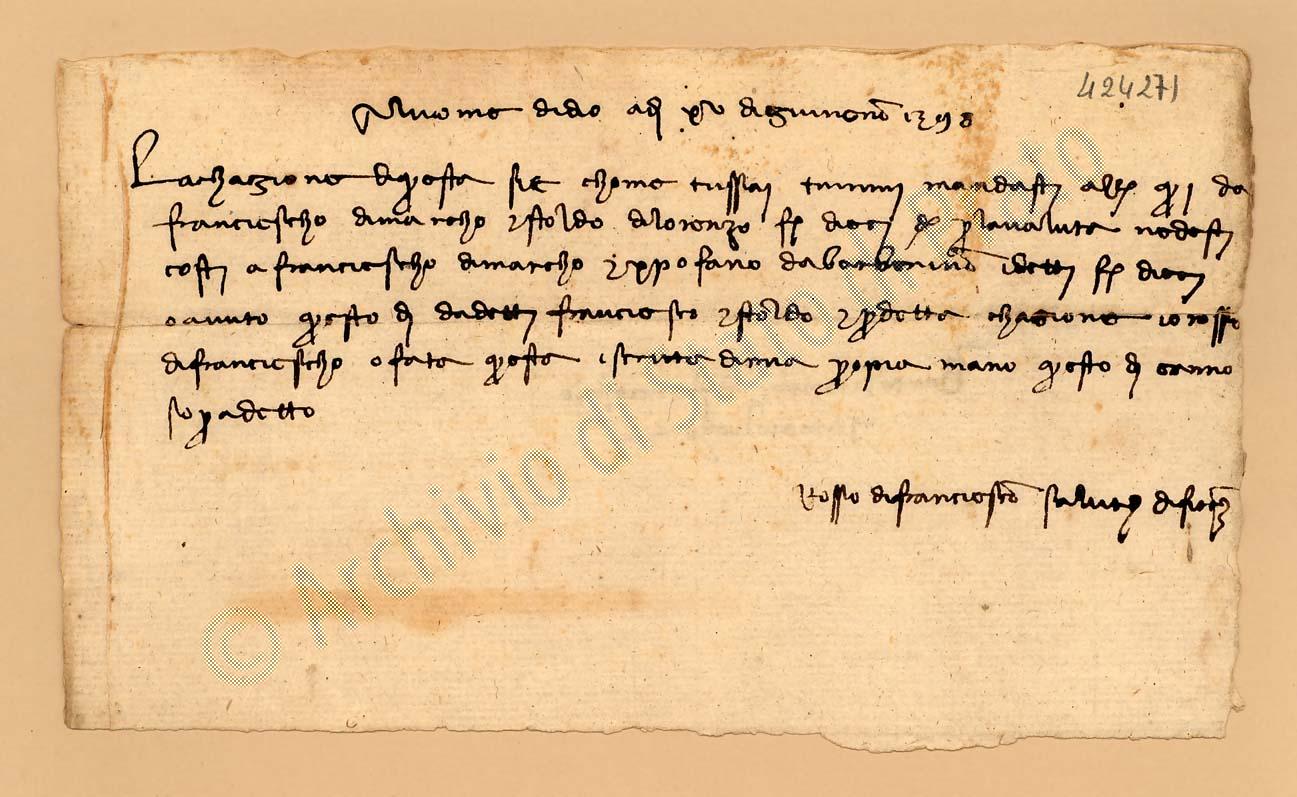 424271
Al nome didio adi xv digungno 1398
Lachagione diquesta sie chome tussai tummi mandasti a qui da
franciescho dimarcho estoldo dilorenzo f dieci per lavaluta nedesti
costi a franciescho dimarcho expofano dabarberino idetti f dieci
oavuto questo di dadetti franciesco estoldo eperdetta chagione iorosso
difranciescho ofata questa iscritta dimia propia mano questo di eanno
sopradetto
Rosso difranciescho saluta difirenze
© Archivio di Stato di Prato